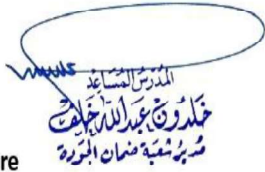 المدرس المساعد
خلدون عبد الله خلف
مدير شعبة ضمان الجودة
re